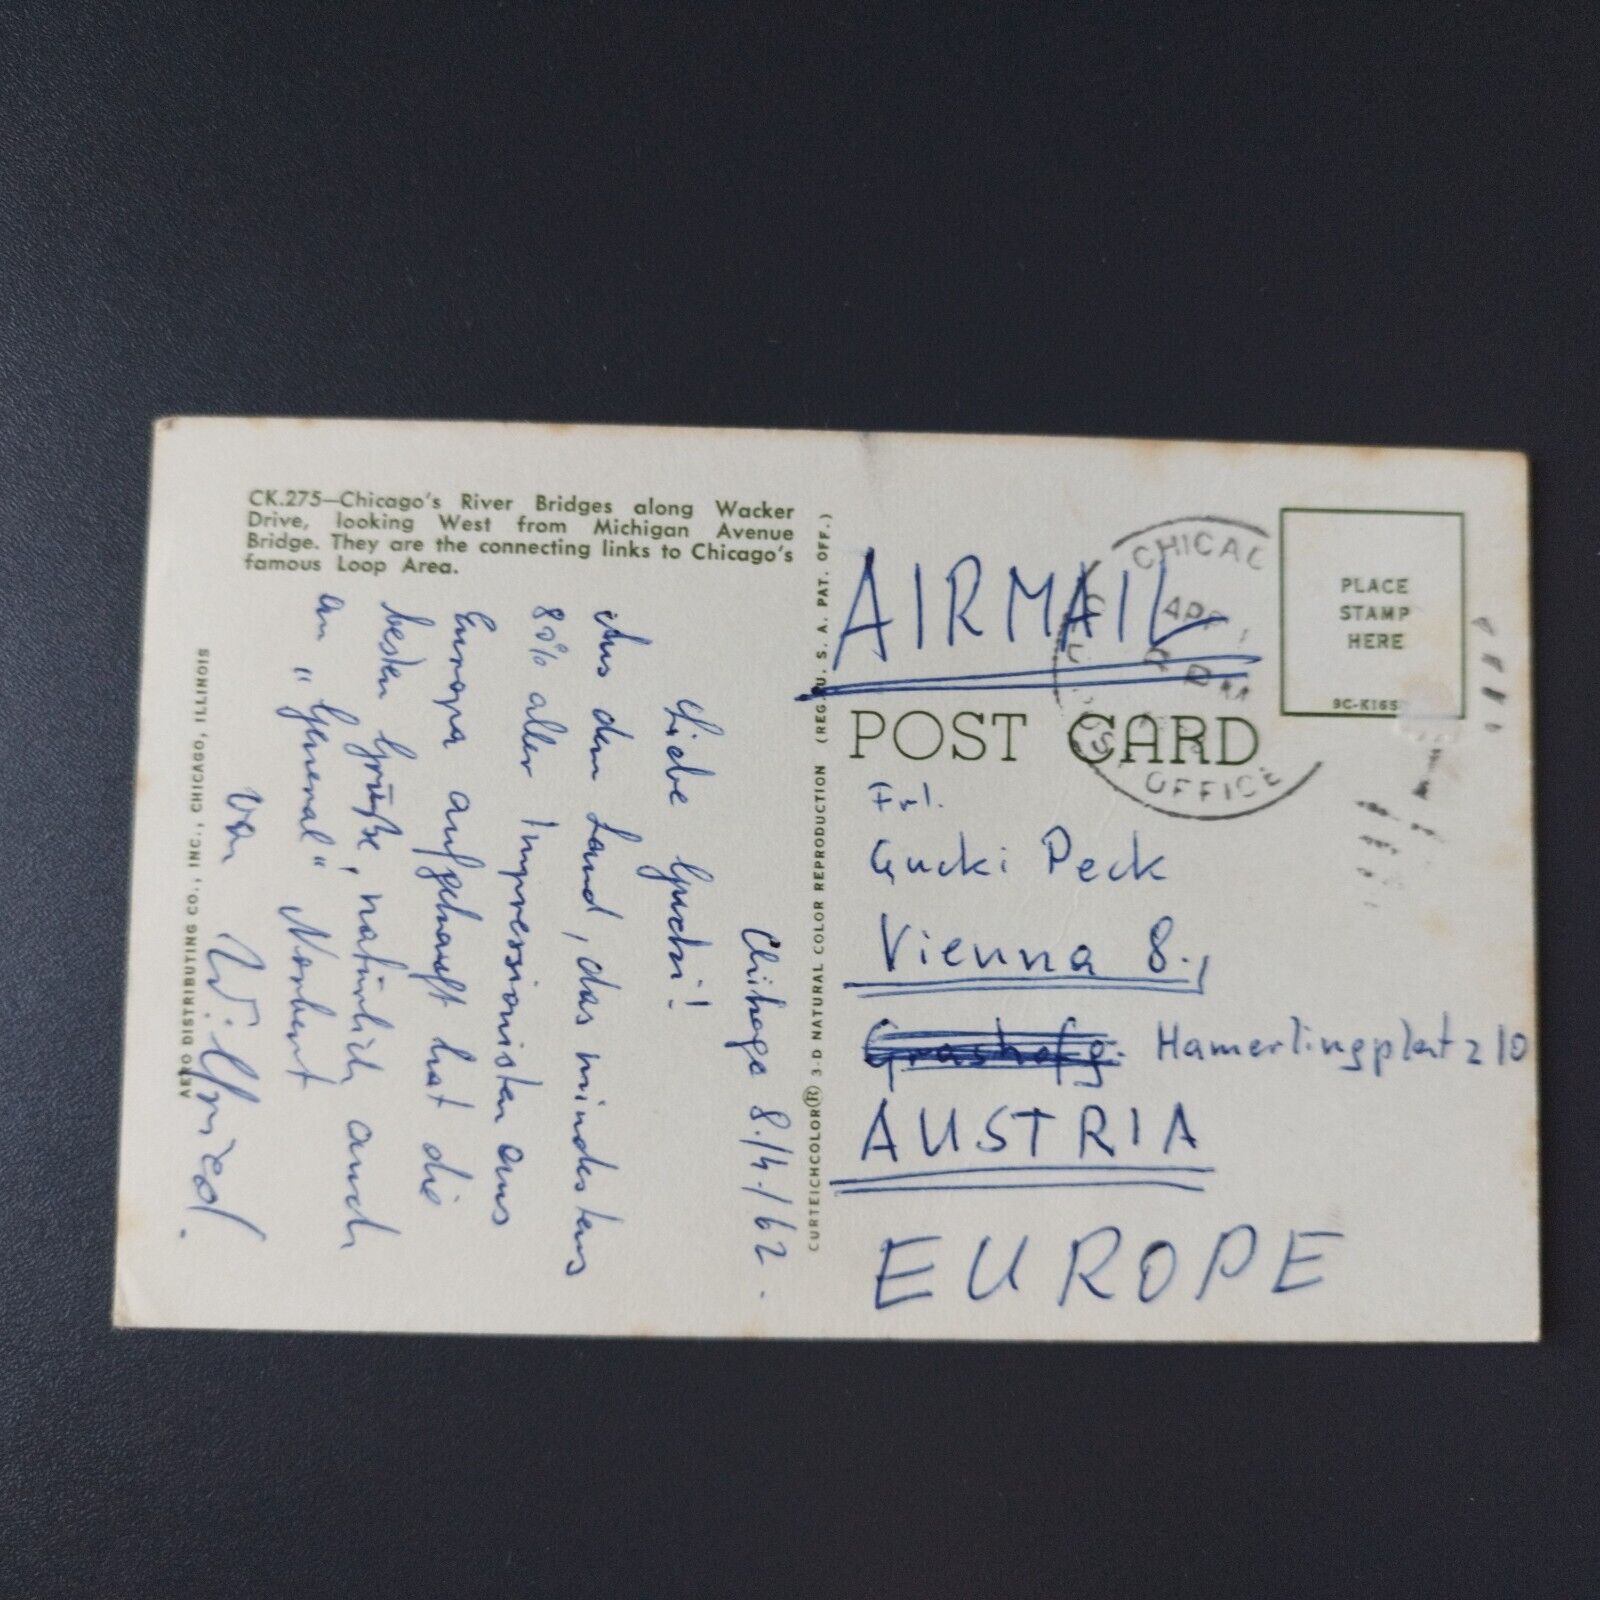 CK.275—Chicago's River Bridges along Wacker
Drive, looking West from Michigan Avenue
Bridge. They are the connecting links to Chicago's
famous Loop Area.
Chikago 8./4./62.
Liebe Gucki!
Aus dem Land, das mindestens
80% aller Impressionisten aus
Europa aufgekauft hat die
besten Grüße, natürlich auch
an „General“ Norbert
von Wilfried.
AERO DISTRIBUTING CO., INC., CHICAGO, ILLINOIS
CURTEICHCOLOR® 3-D NATURAL COLOR REPRODUCTION (REG. U. S. A. PAT. OFF.)
AIRMAIL
POST CARD
PLACE
STAMP
HERE
9C-K165
CHICAG
APR
OFFICE
Frl.
Gucki Peck
Vienna 8.,
Grashofg. Hamerlingplatz 10
AUSTRIA
EUROPE